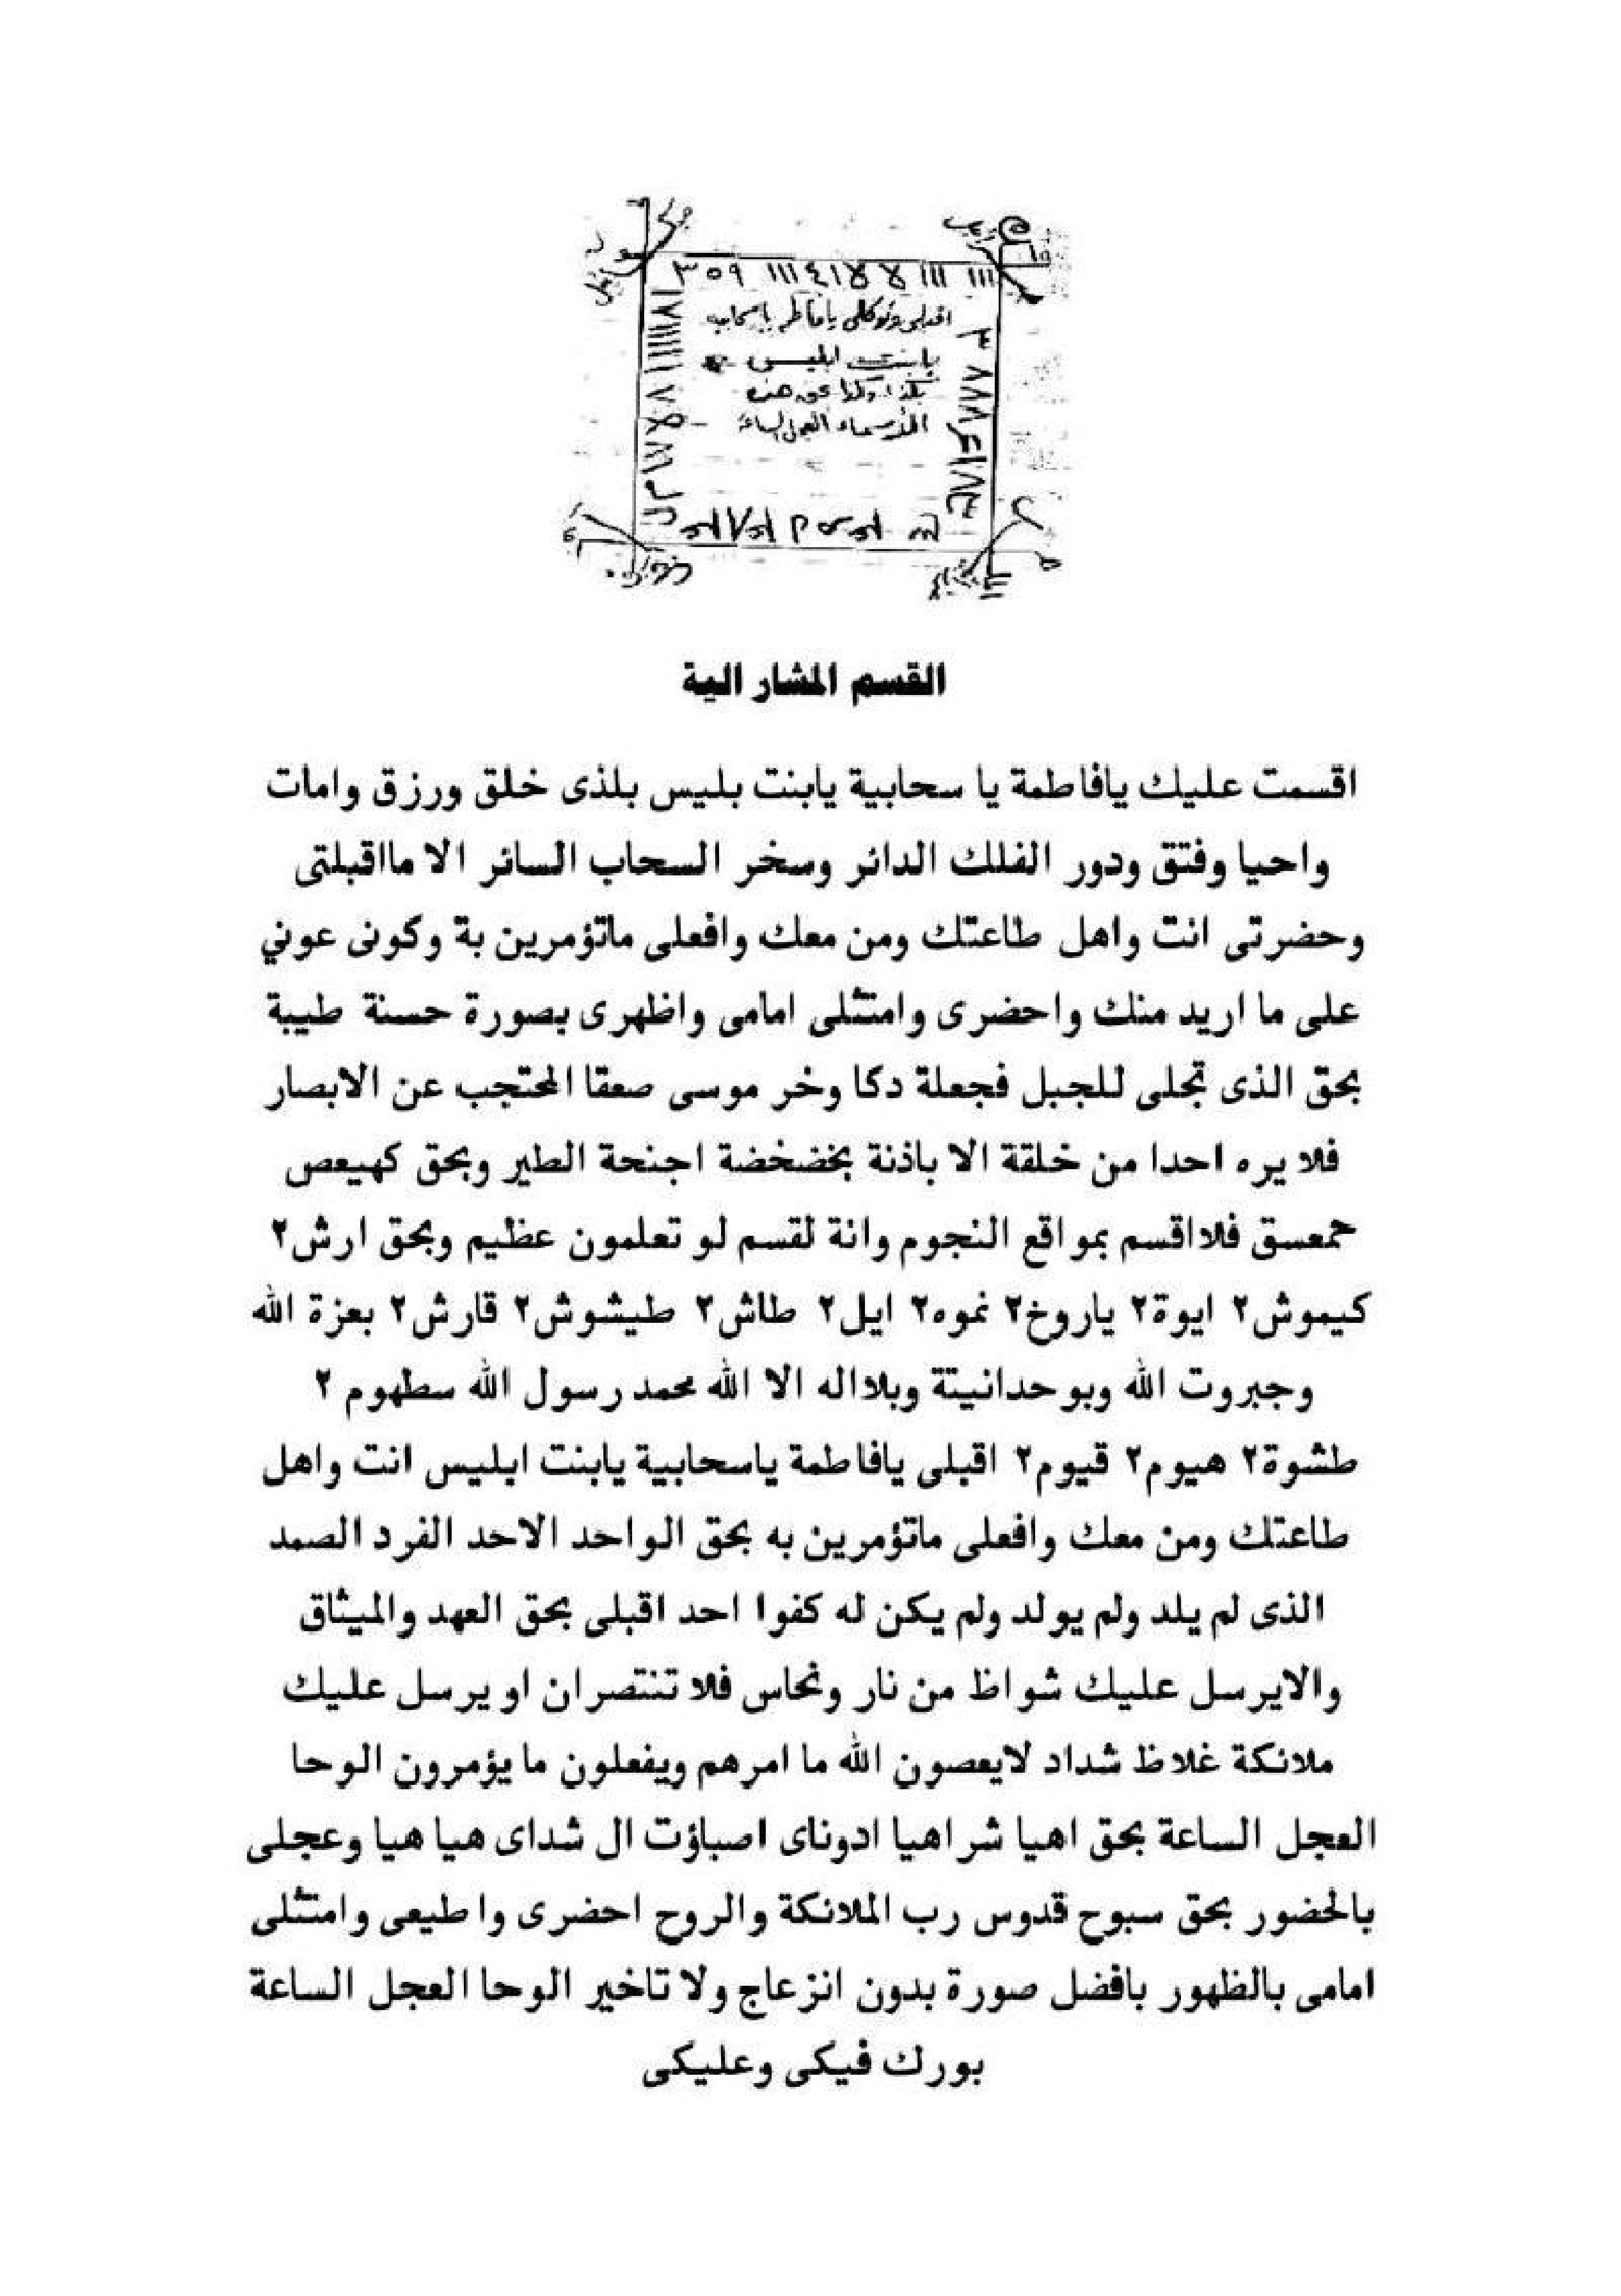 ٣٥٩ ااا ٤١ لا لا ااا ااا
يا بنت ابليس
القسم المشار الية
اقسمت عليك يافاطمة يا سحابية يابنت بليس بلذى خلق ورزق وامات
واحيا وفتق ودور الفلك الدائر وسخر السحاب السائر الا مااقبلتى
وحضرتى انت واهل طاعتك ومن معك وافعلى ماتؤمرين بة وكونى عوني
على ما اريد منك واحضرى وامتثلى امامى واظهرى بصورة حسنة طيبة
بحق الذى تجلى للجبل فجعلة دكا وخر موسى صعقا المحتجب عن الابصار
فلا يره احدا من خلقة الا باذنة بخضخضة اجنحة الطير وبحق كهيعص
حمعسق فلااقسم بمواقع النجوم وانة لقسم لو تعلمون عظيم وبحق ارش٢
كيموش٢ ايوة٢ ياروخ٢ نموه٢ ايل٢ طاش٢ طيشوش٢ قارش٢ بعزة الله
وجبروت الله وبوحدانيتة وبلااله الا الله محمد رسول الله سطهوم ٢
طشوة٢ هيوم٢ قيوم٢ اقبلى يافاطمة ياسحابية يابنت ابليس انت واهل
طاعتك ومن معك وافعلى ماتؤمرين به بحق الواحد الاحد الفرد الصمد
الذى لم يلد ولم يولد ولم يكن له كفوا احد اقبلى بحق العهد والميثاق
والايرسل عليك شواظ من نار ونحاس فلا تنتصران او يرسل عليك
ملائكة غلاظ شداد لايعصون الله ما امرهم ويفعلون ما يؤمرون الوحا
العجل الساعة بحق اهيا شراهيا ادوناى اصباؤت ال شداى هيا هيا وعجلى
بالحضور بحق سبوح قدوس رب الملائكة والروح احضرى واطيعى وامتثلى
امامى بالظهور بافضل صورة بدون انزعاج ولا تاخير الوحا العجل الساعة
بورك فيكى وعليكى